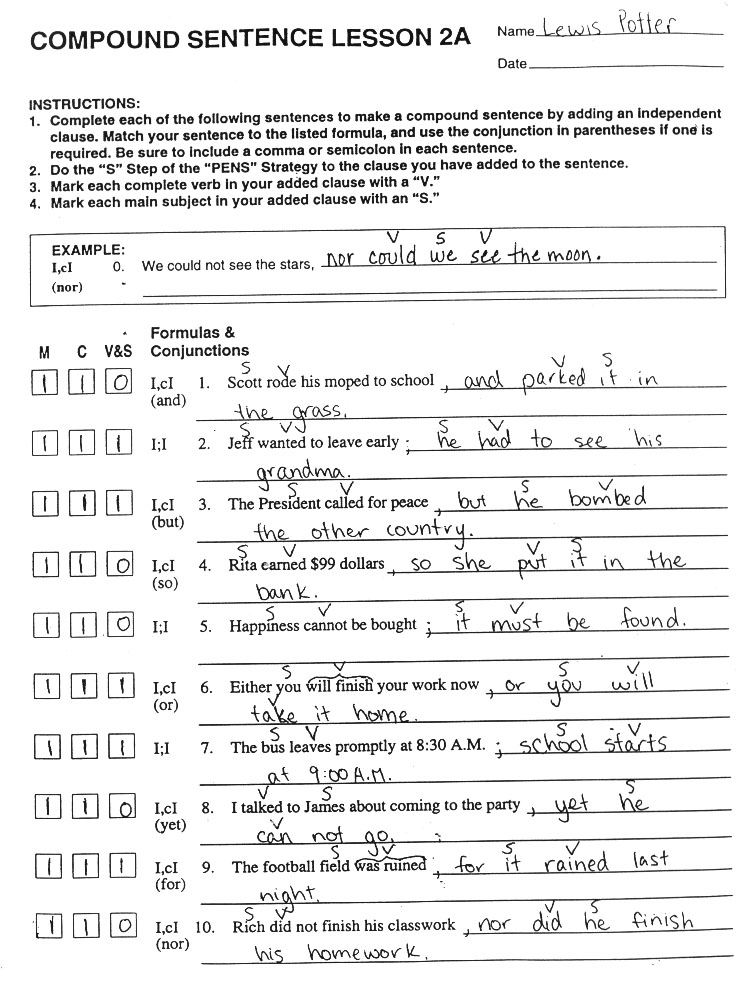 COMPOUND SENTENCE LESSON 2A
Name Lewis Potter
Date
INSTRUCTIONS:
1. Complete each of the following sentences to make a compound sentence by adding an independent
clause. Match your sentence to the listed formula, and use the conjunction in parentheses if one is
required. Be sure to include a comma or semicolon in each sentence.
2. Do the “S” Step of the “PENS” Strategy to the clause you have added to the sentence.
3. Mark each complete verb in your added clause with a “V.”
4. Mark each main subject in your added clause with an “S.”
V S V
EXAMPLE:
I,cI 0. We could not see the stars, nor could we see the moon.
(nor)
Formulas &
M C V&S Conjunctions
S V V S
1 1 0 I,cI 1. Scott rode his moped to school , and parked it in
(and)
the grass.
S V S V
1 1 1 I;I 2. Jeff wanted to leave early ; he had to see his
grandma.
S V S V
1 1 1 I,cI 3. The President called for peace , but he bombed
(but)
the other country.
S V V S
1 1 0 I,cI 4. Rita earned $99 dollars , so she put it in the
(so)
bank.
S V S V
1 1 0 I;I 5. Happiness cannot be bought ; it must be found.
S V S V
1 1 1 I,cI 6. Either you will finish your work now , or you will
(or)
V
take it home.
S V S V
1 1 1 I;I 7. The bus leaves promptly at 8:30 A.M. ; school starts
at 9:00 A.M.
V S S
1 1 0 I,cI 8. I talked to James about coming to the party , yet he
(yet)
V
can not go.
S V S V
1 1 1 I,cI 9. The football field was ruined , for it rained last
(for)
night.
S V V S
1 1 0 I,cI 10. Rich did not finish his classwork , nor did he finish
(nor)
his homework.